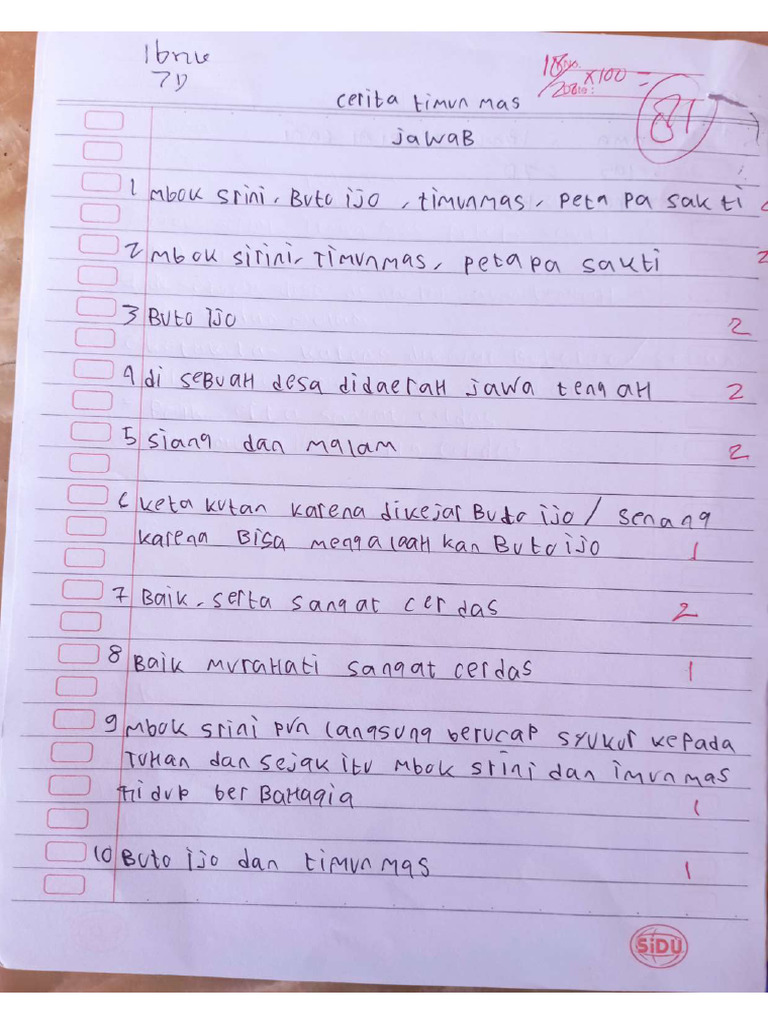 Ibnu
7D
18 x 100 =
/20
81
No.
cerita timun mas
jawaB
1 mbok srini, Buto ijo, timunmas, peta pa sak ti
2 mbok sirini, Timunmas, petapa sakti 2
3 Buto ijo 2
4 di seBuaH desa didaeraH jawa tengaH 2
5 siang dan malam 2
6 keta kutan karena dikejar Buto ijo / senang
karena Bisa mengalaaH kan Buto ijo 1
7 Baik, serta sangat cerdas 2
8 Baik muraHati sangat cerdas 1
9 mbok srini pun langsung berucap syukur kepada
TuHan dan sejak itu mbok srini dan imunmas
Hidup ber BaHagia 1
10 Buto ijo dan timunmas 1
SiDU